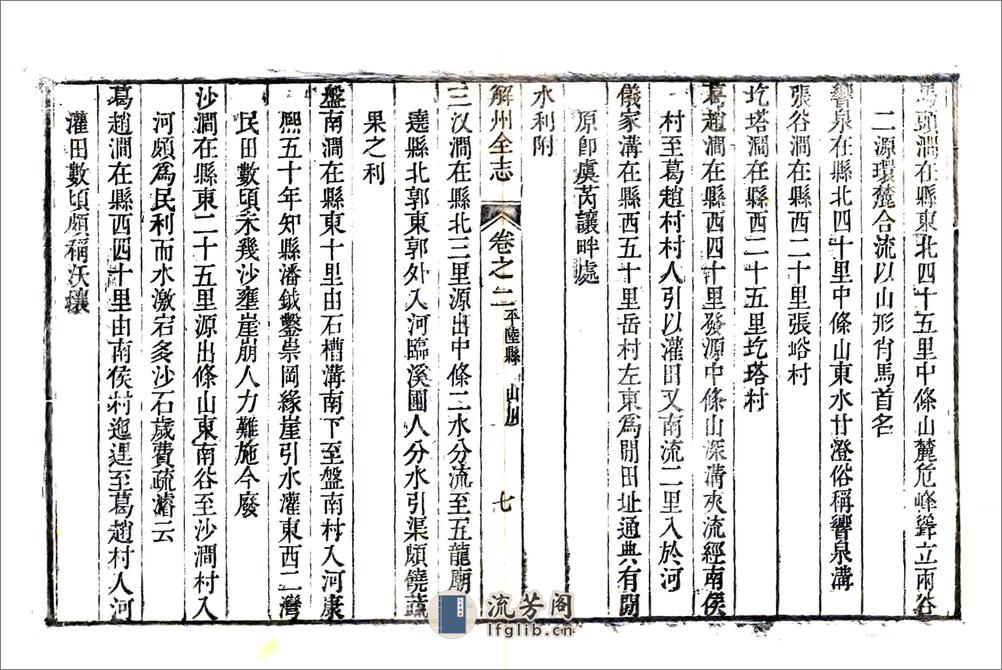 馬頭澗在縣東北四十五里中條山麓危峰聳立兩谷
二源環麓合流以山形肖馬首名
響泉在縣北四十里中條山東水甘澄俗稱響泉溝
張谷澗在縣西二十里張峪村
圪塔澗在縣西二十五里圪塔村
葛趙澗在縣西四十里發源中條山深溝夾流經南侯
村至葛趙村村人引以灌田又南流二里入於河
儀家溝在縣西五十里岳村左東為閒田址通典有閒
原卽虞芮讓畔處
水利附
解州全志 卷之二 平陸縣 山川 七
三汊澗在縣北三里源出中條二水分流至五龍廟
遶縣北郭東郭外入河臨溪圃人分水引渠頗饒蔬
果之利
盤南澗在縣東十里由石槽溝南下至盤南村入河康
熙五十年知縣潘鉞鑿祟岡緣崖引水灌東西二灣
民田數頃未幾沙壅崖崩人力難施今廢
沙澗在縣東二十五里源出條山東南谷至沙澗村入
河頗為民利而水激宕多沙石歲費疏濬云
葛趙澗在縣西四十里由南侯村迤邐至葛趙村入河
灌田數頃頗稱沃壤
流芳阁
lfglib.cn